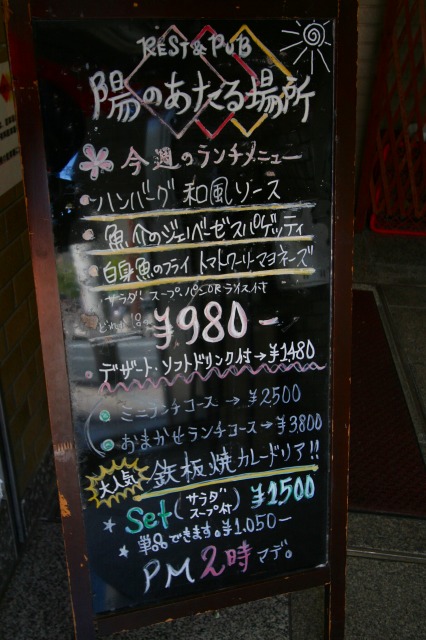 REST & PUB
陽のあたる場所
今週のランチメニュー
・ハンバーグ 和風ソース
・魚介のジェノベーゼスパゲッティ
・白身魚のフライ トマトワーリーマヨネーズ
サラダ・スープ・パンORライス付
どれか1品 ¥980-
・デザート・ソフトドリンク付→¥1480
ミニランチコース → ¥2500
おまかせランチコース→¥3800
大人気 鉄板焼カレードリア!!
Set(サラダ スープ付) ¥1500
★ 単品できます。¥1.050-
PM 2時マデ。